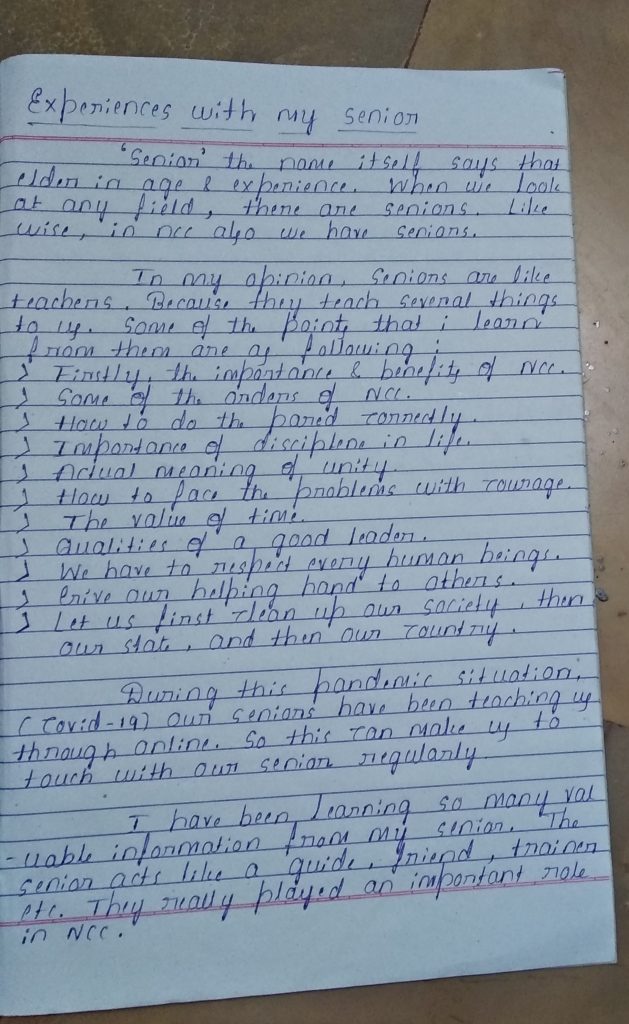 Experiences with my senior
'Senior' the name itself says that
elder in age & experience. When we look
at any field, there are seniors. Like
wise, in ncc also we have seniors.
In my opinion, seniors are like
teachers. Because they teach several things
to us. Some of the points that i learn
from them are as following :
> Firstly, the importance & benefits of NCC.
> Some of the orders of NCC.
> How to do the pared correctly.
> Importance of disciplene in life.
> Actual meaning of unity.
> How to face the problems with courage.
> The value of time.
> Qualities of a good leader.
> We have to respect every human beings.
> Give our helping hand to others.
> Let us first clean up our society, then
our state, and then our country.
During this pandemic situation,
(Covid-19) our seniors have been teaching us
through online. So this can make us to
touch with our senior regularly.
I have been learning so many val
-uable information from my senior. The
senior acts like a guide, friend, trainer
etc. They really played an important role
in NCC.